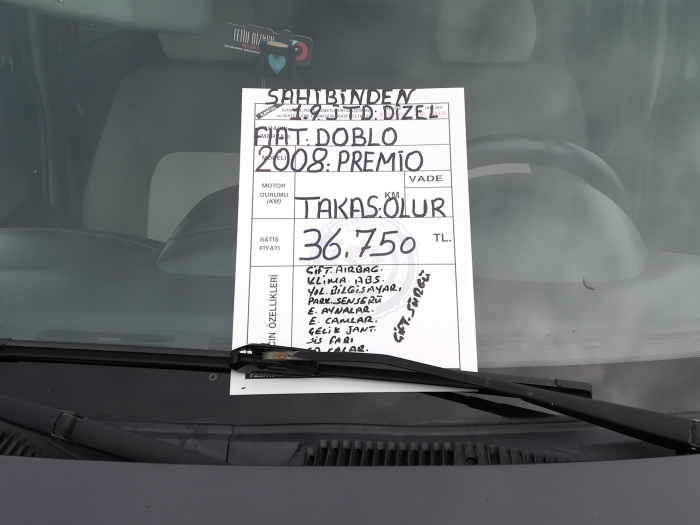 FETİH
SAHİBİNDEN
1.9. JTD: DİZEL
FİAT: DOBLO
2008: PREMİO
MOTOR
DURUMU
(KM)
VADE
KM
TAKAS: OLUR
SATIŞ
FİYATI
36.750 TL.
ÖZELLİKLERİ
ÇİFT. AIRBAG.
KLİMA ABS.
YOL. BİLGİSAYARI
PARK. SENSERÜ
E. AYNALAR.
E. CAMLAR.
ÇELİK JANT.
SİS FARI
ÇİFT. SÜRGÜ